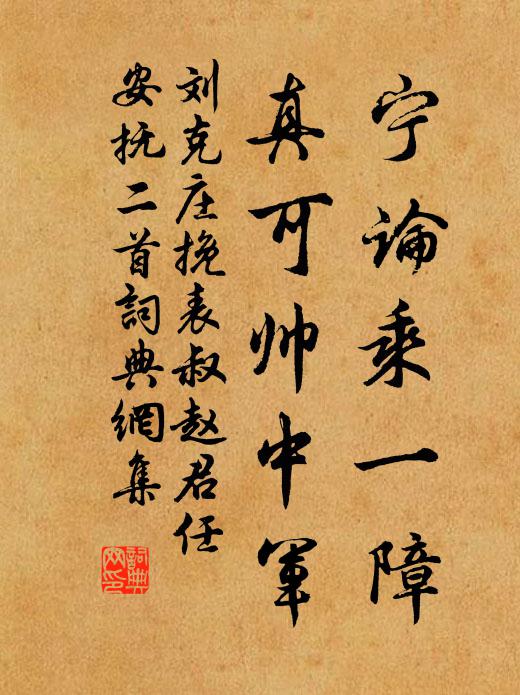 宁論乘一障
真可帅中軍
刘克庄挽表叔赵君任
安抚二首詞典網集
詞典網印